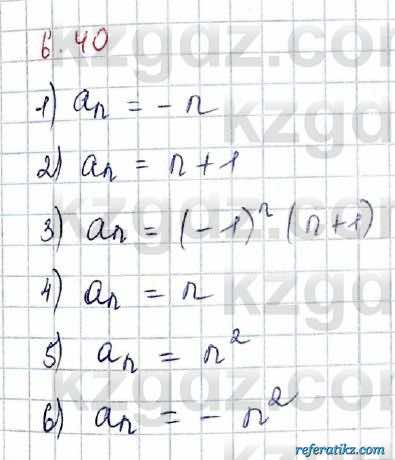 6.40
1) aₙ = - n
2) aₙ = n + 1
3) aₙ = (-1)ⁿ (n+1)
4) aₙ = n
5) aₙ = n²
6) aₙ = - n²
referatikz.com